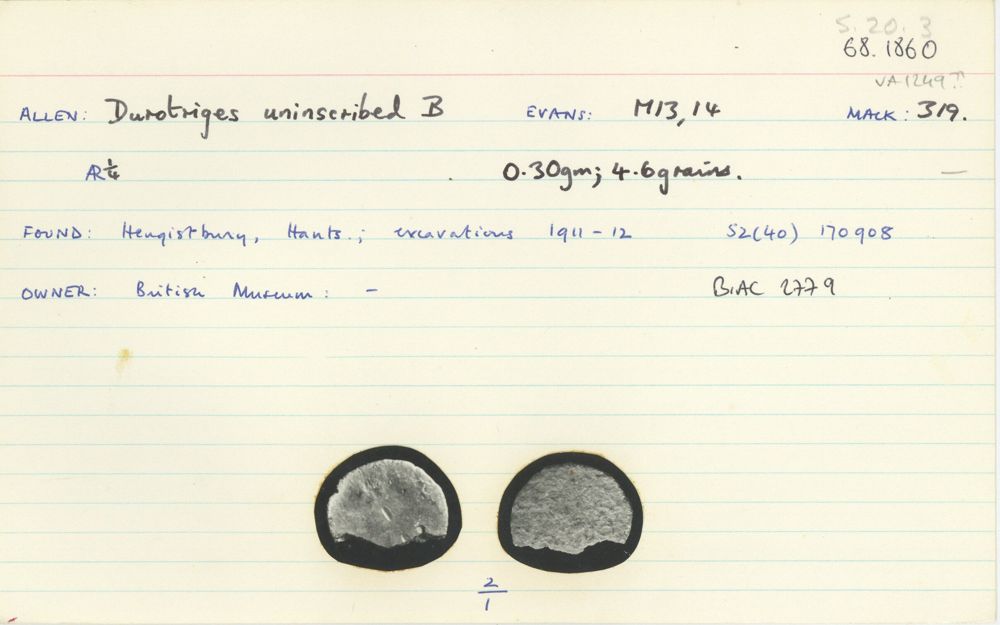 S. 20. 3
68.1860
VA1249??
ALLEN: Durotriges uninscribed B EVANS: M13,14 MACK: 319.
AR¼ 0.30gm; 4.6grains. —
FOUND: Hengistbury, Hants.; excavations 1911-12 SZ(40) 170908
OWNER: British Museum: - BIAC 2779
2/1